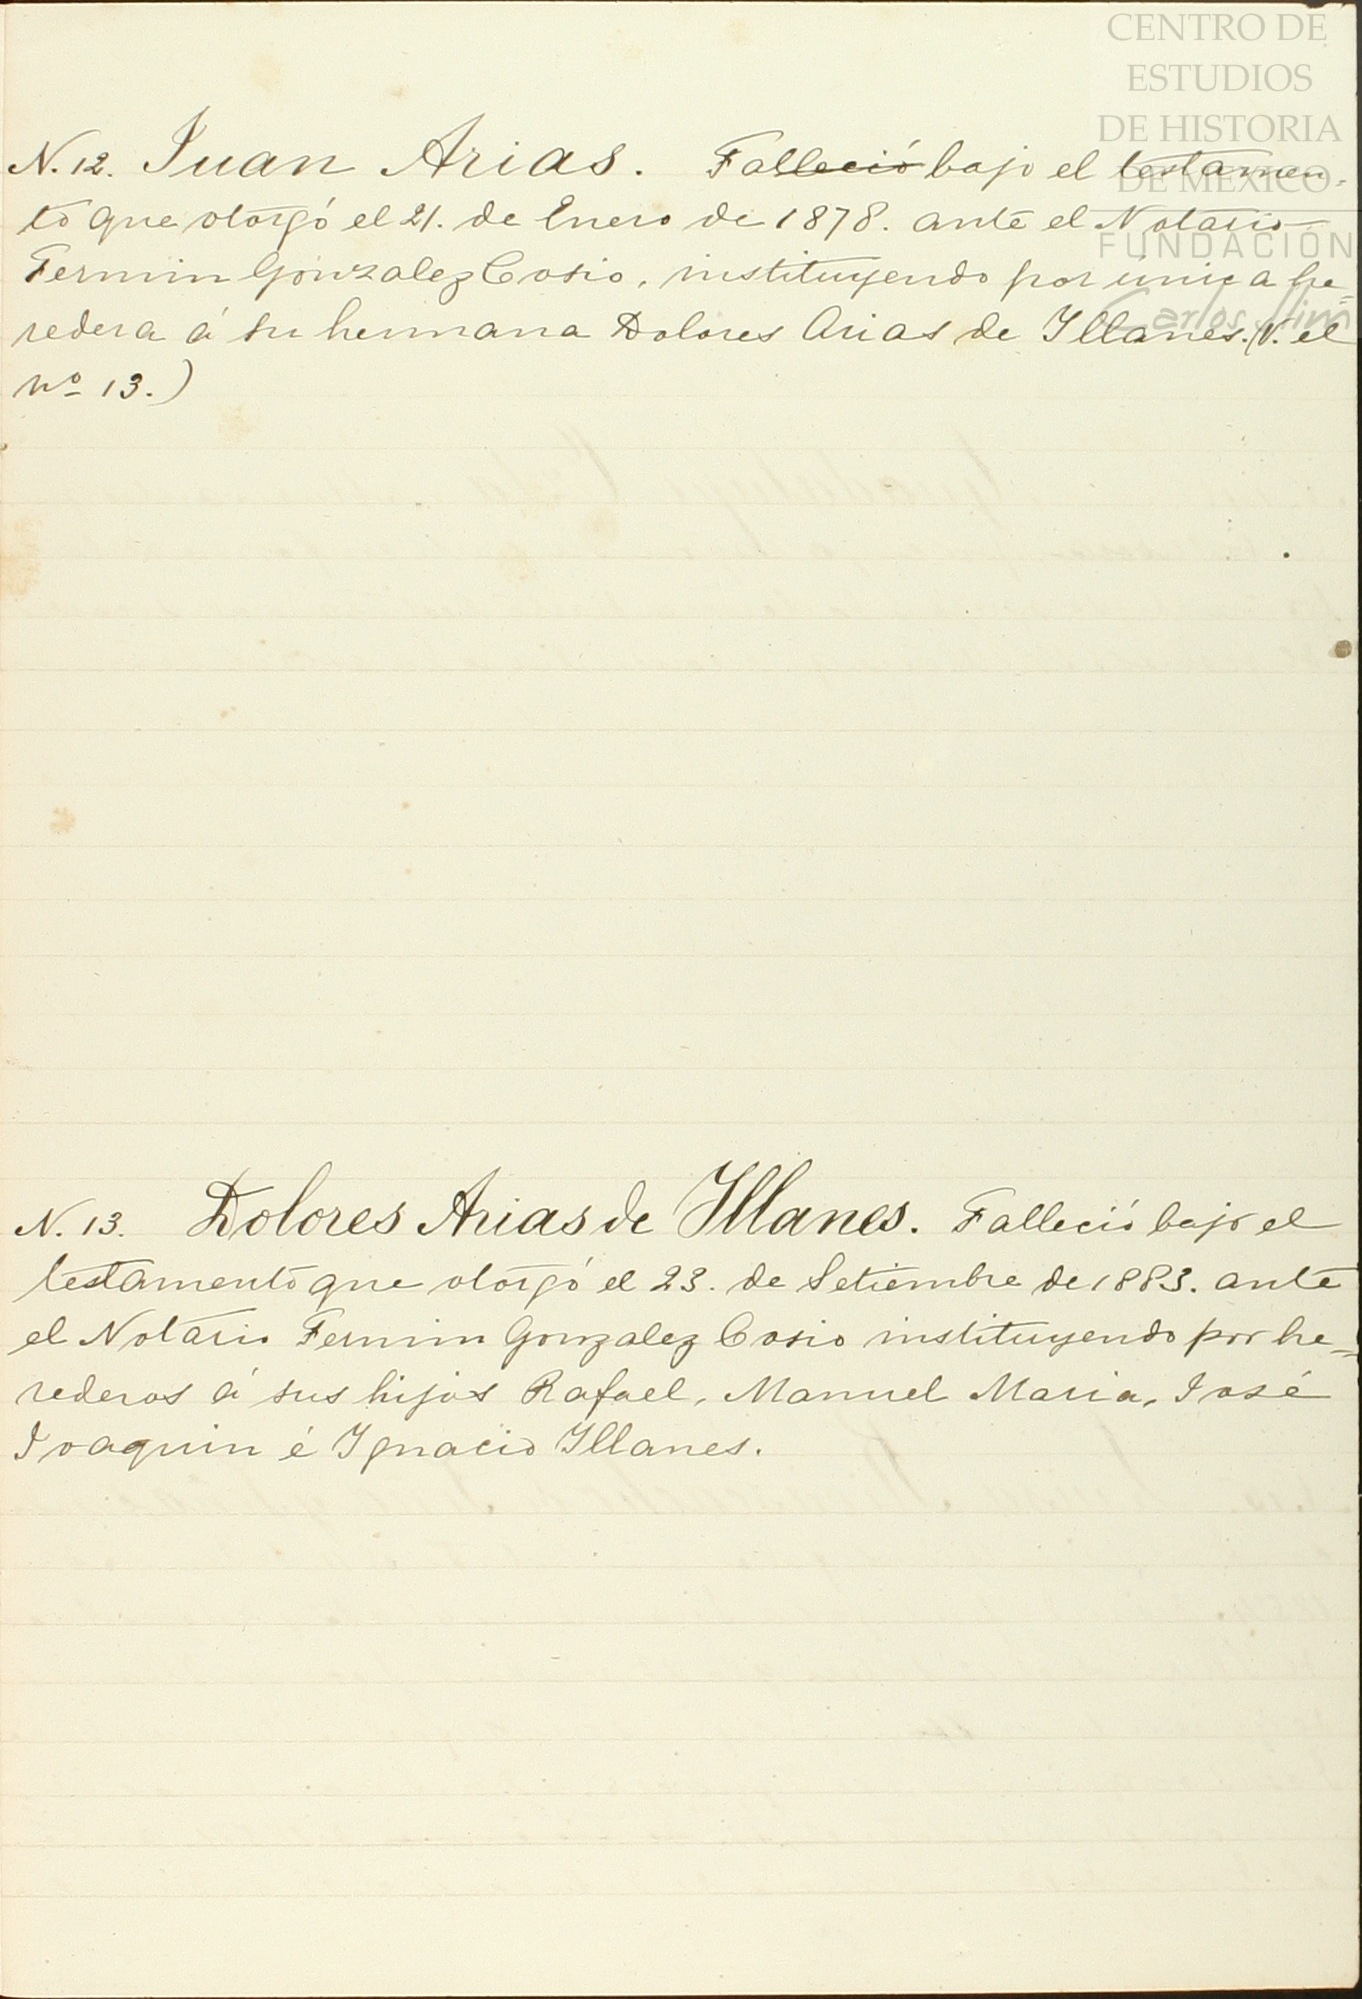 CENTRO DE
ESTUDIOS
DE HISTORIA
DE MEXICO
FUNDACIÓN
Carlos Slim
N. 12. Juan Arias. Falleció bajo el testamen-
to que otorgó el 21. de Enero de 1878. ante el Notario
Fermin Gonzalez Cosio, instituyendo por única he=
redera á su hermana Dolores Arias de Yllanes. (V. el
nº 13.)
N. 13. Dolores Arias de Yllanes. Falleció bajo el
testamento que otorgó el 23. de Setiembre de 1883. ante
el Notario Fermin Gonzalez Cosio instituyendo por he=
rederos á sus hijos Rafael, Manuel Maria, José
Joaquin é Ygnacio Yllanes.